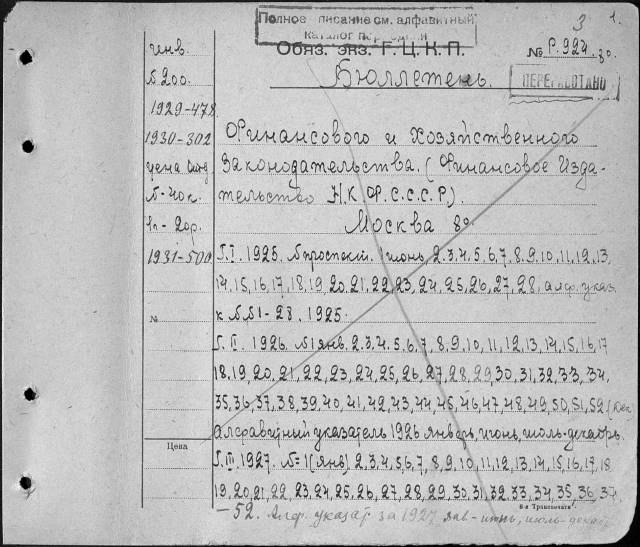 3 1.
Полное писание см. алфавитный
каталог периодики
Обяз. экз. Г. Ц. К. П.
№ Р. 924 80.
Бюллетень.
ПЕРЕРАБОТАНО
инв.
№ 200.
1929-478.
1930-302
цена
№-40к.
2ор.
1931-500
Финансового и Хозяйственного
Законодательства. (Финансовое Изда-
тельство Н.К.Ф.С.С.С.Р.).
Москва 8°
Г.I. 1925. № проспект. 1 июнь, 2.3.4.5,6,7,8,9,10,11,12,13
14,15,16,17,18,19,20,21,22,23,24,25,26,27,28, алф. указ.
№
к №№1-28. 1925.
Г. II. 1926. №1 янв. 2.3.4.5,6,7,8,9,10,11,12,13,14,15,16,17
18,19,20,21,22,23,24,25,26,27,28,29,30,31,32,33,34,
35,36,37,38,39,40,41,42,43,44,45,46,47,48,49,50,51,52 (Дек
Алфавитный указатель 1926 январь, июнь, июль-декабрь.
Цена
Г. III. 1927. №=1(янв) 2,3,4,5,6,7,8,9,10,11,12,13,14,15,16,17,18
19,20,21,22,23,24,25,26,27,28,29,30,31,32,33,34,35,36,37
6-я Транспечати
-52. Алф. указат за 1927 янв-июнь, июль-декаб